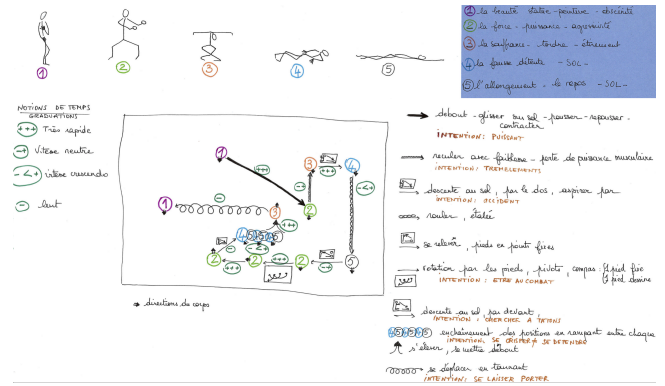 1 la beauté statue - positive - obscénité
2 la force - puissance - agressivité
3 la souffrance - tordre - étirement
4 la fausse détente - SOL -
5 l'allongement - le repos - SOL -
1 2 3 4 5
NOTIONS DE TEMPS
GRADUATIONS
+++ Très rapide
-+ Vitesse neutre
-<+ vitesse crescendo
- lent
1 3 4
+++ +++
-+ -<+
1 - 3 2
+++
4 5 4 5 4 5
- -<+
2 +++ 2 +++ 2 -+ 5
→ directions du corps
debout - glisser au sol - pousser - repousser -
contracter
INTENTION: PUISSANT
reculer avec faiblesse - perte de puissance musculaire
INTENTION: TREMBLEMENTS
descente au sol, par le dos, aspirer par
INTENTION: ACCIDENT
rouler, étalée
se relever, pieds en pointe fixes
rotation par les pieds, pivots, compas: 1 pied fixe
1 pied dessine
INTENTION: ETRE AU COMBAT
descente au sol, par devant,
INTENTION: CHERCHER A TATONS
4 5 4 5 4 5 enchaînement des positions en rampant entre chaque
INTENTION: SE CRISPER & SE DETENDRE
s'élever, se mettre debout
se déplacer en tournant
INTENTION: SE LAISSER PORTER